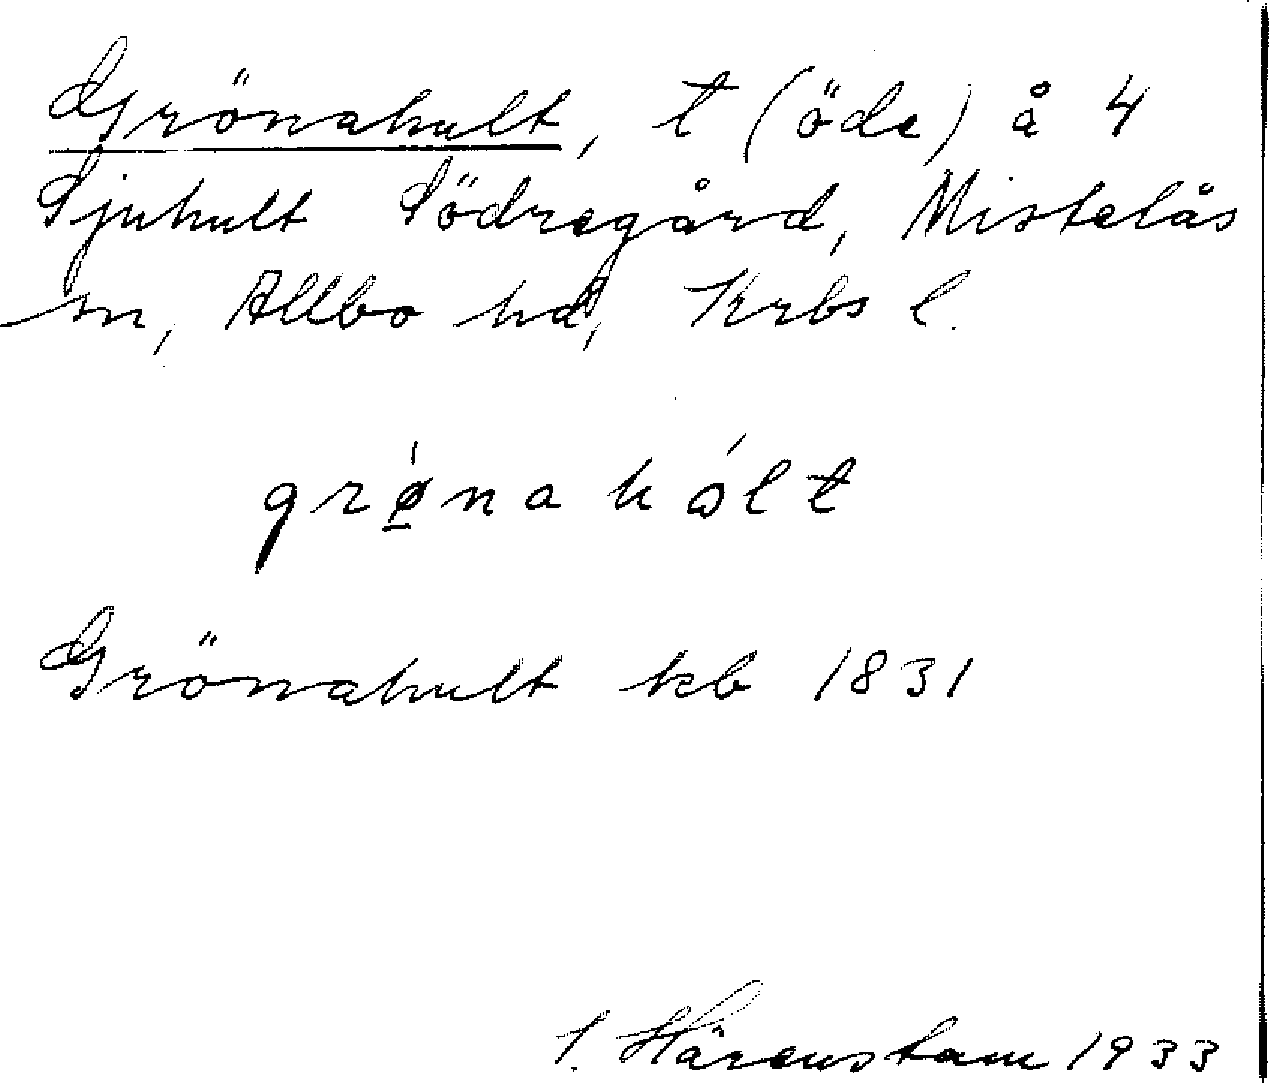 Grönahult, t (öde) å 4
Sjuhult Södregård, Mistelås
sn, Allbo hd, Krbs l.
grǿ̱nahólt
Grönahult kb 1831
S. Härenstam 1933